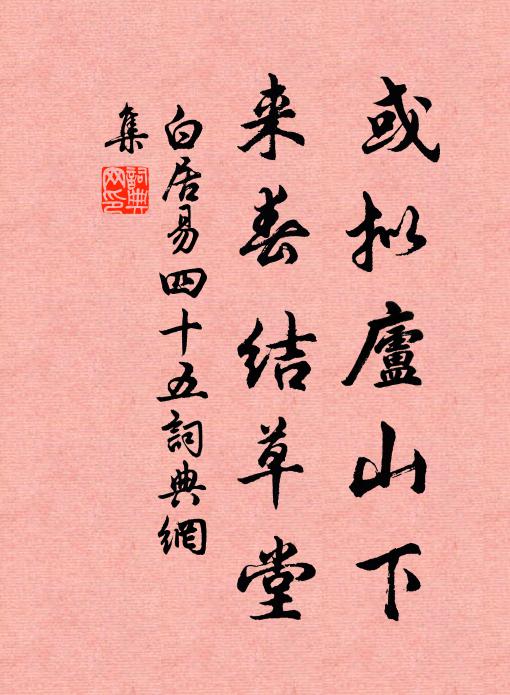 或拟廬山下
来春结草堂
白居易四十五詞典網
集
詞典
网印